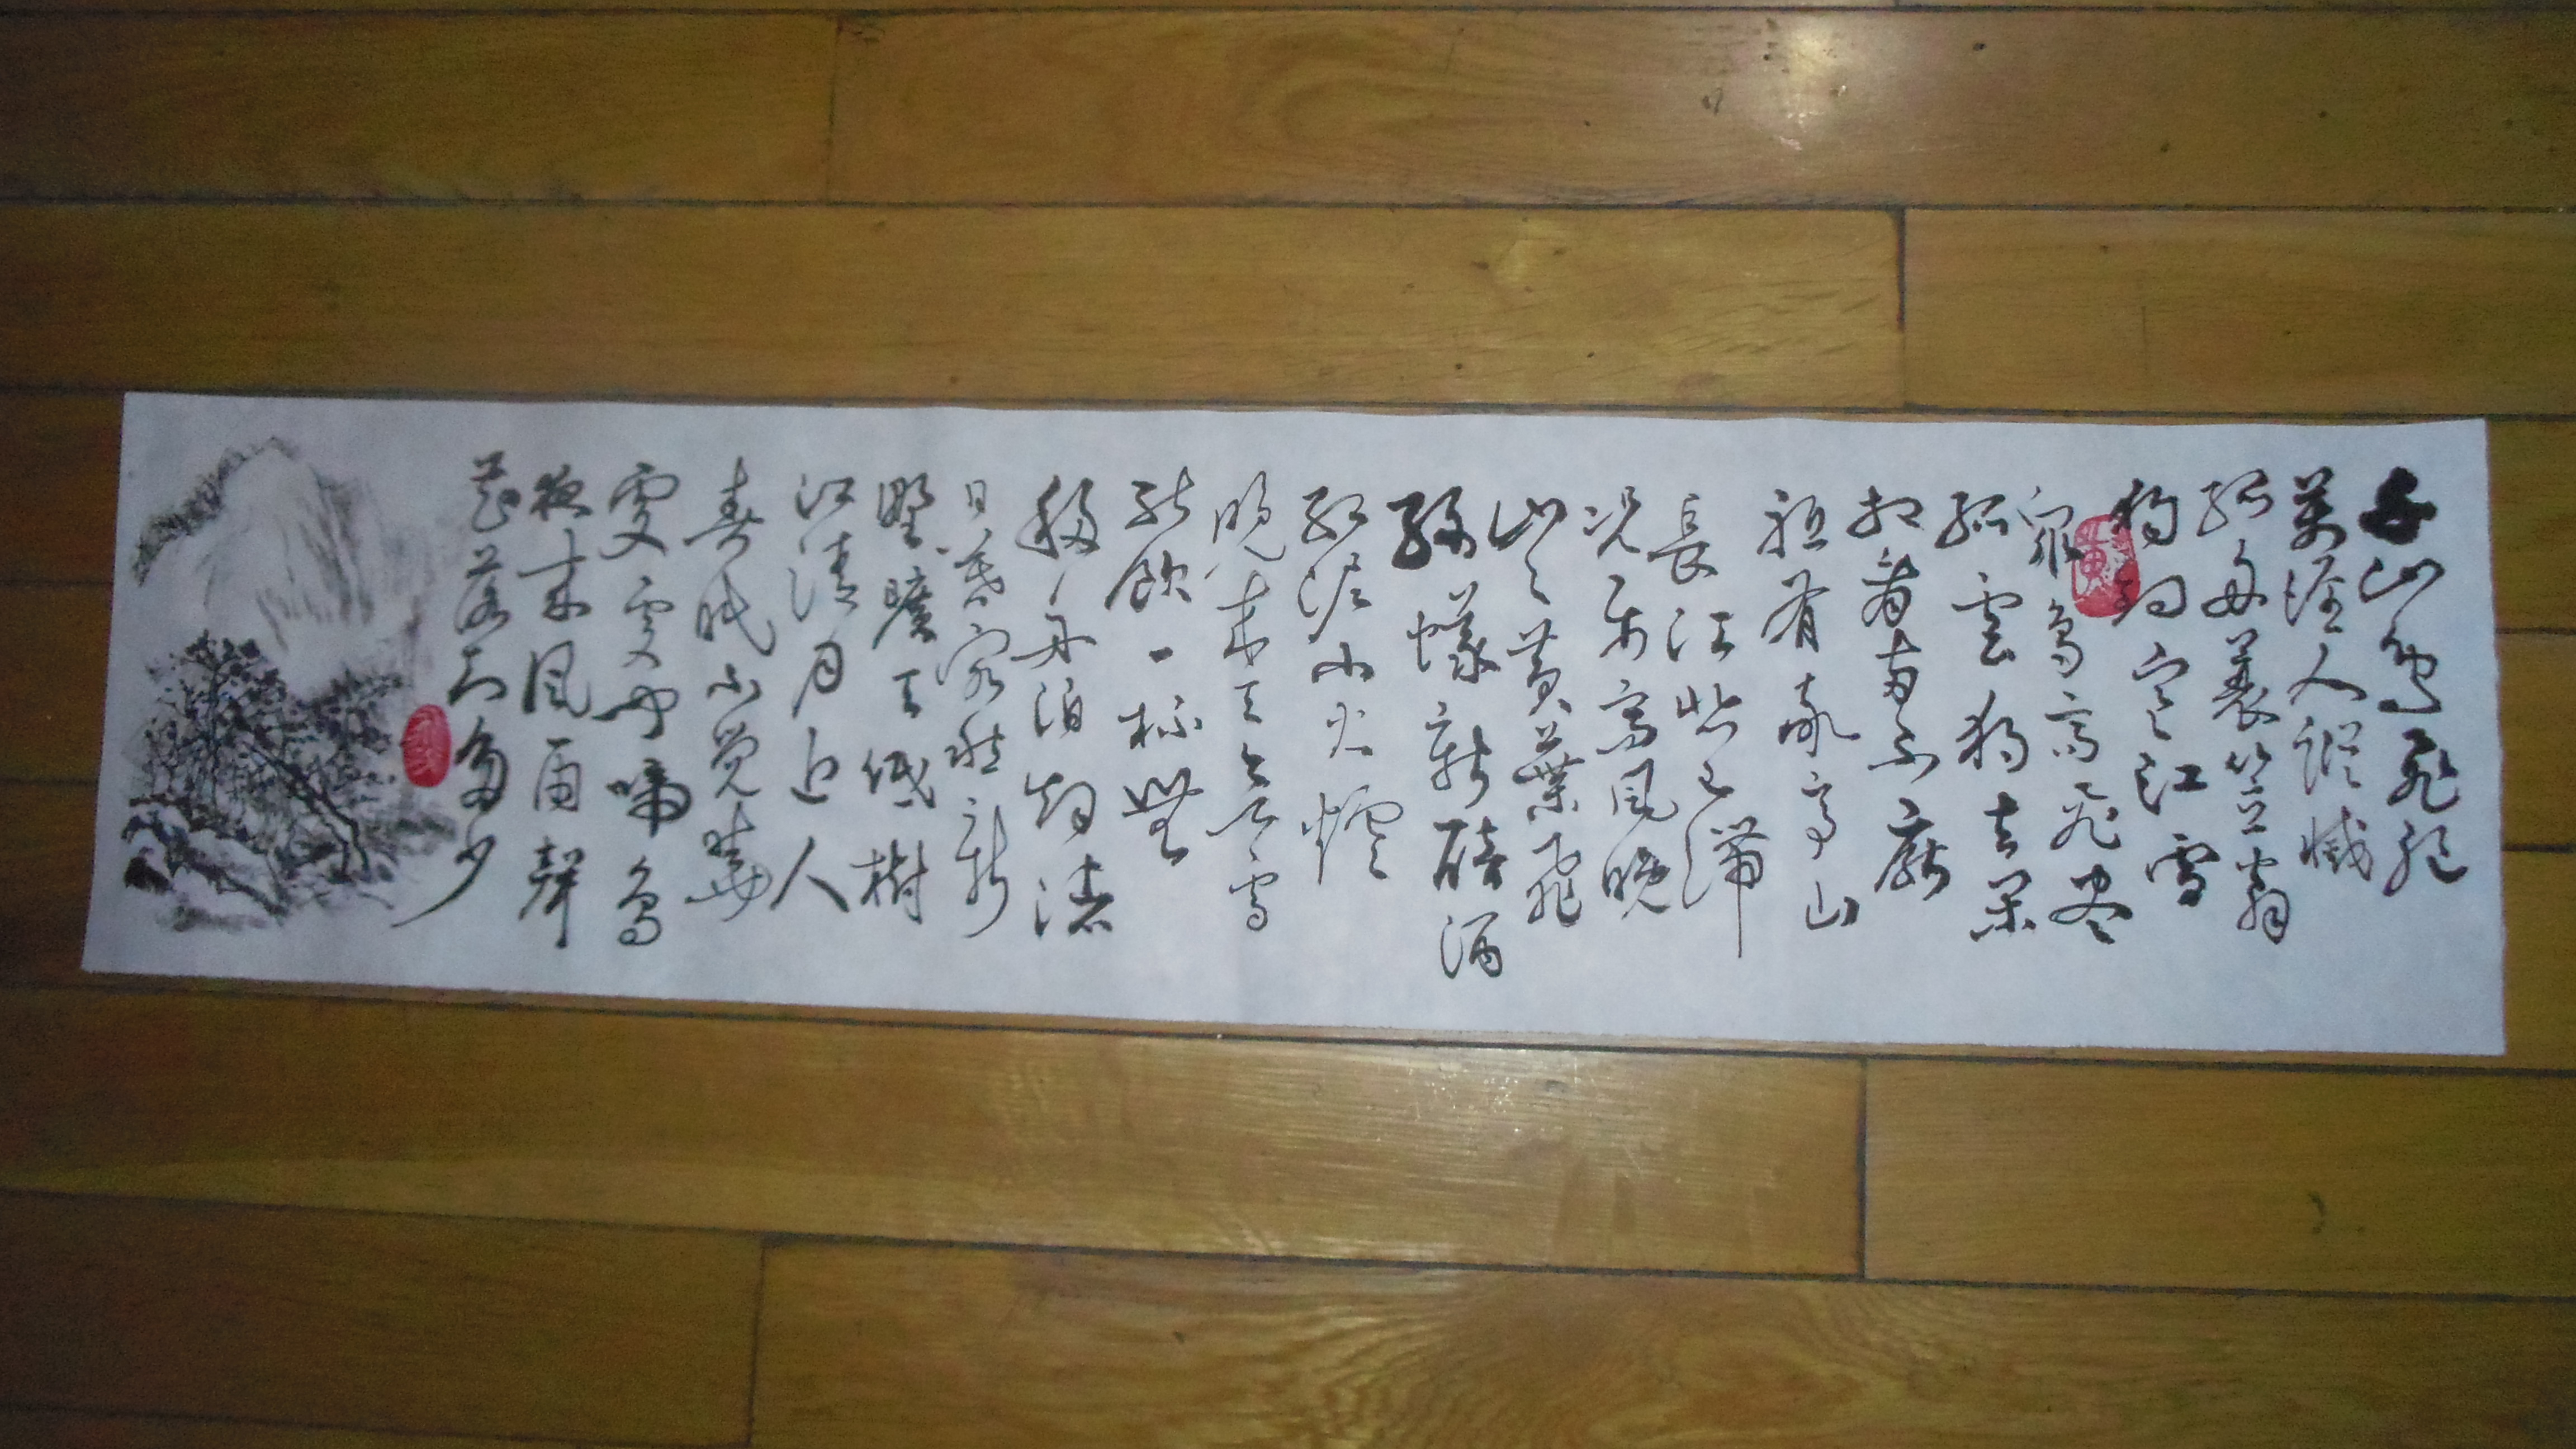 千山鸟飛絕
萬徑人踪滅
孤舟蓑笠翁
独钓寒江雪
眾鸟高飛尽
孤雲独去闲
相看两不厭
祗有敬亭山
長江悲已滯
况属高風晚
山山黄葉飛
綠蟻新醅酒
紅泥小火爐
晚来天欲雪
能飲一杯無
移舟泊烟渚
日暮客愁新
野曠天低樹
江清月近人
春眠不觉曉
處處闻啼鸟
夜来風雨聲
花落知多少